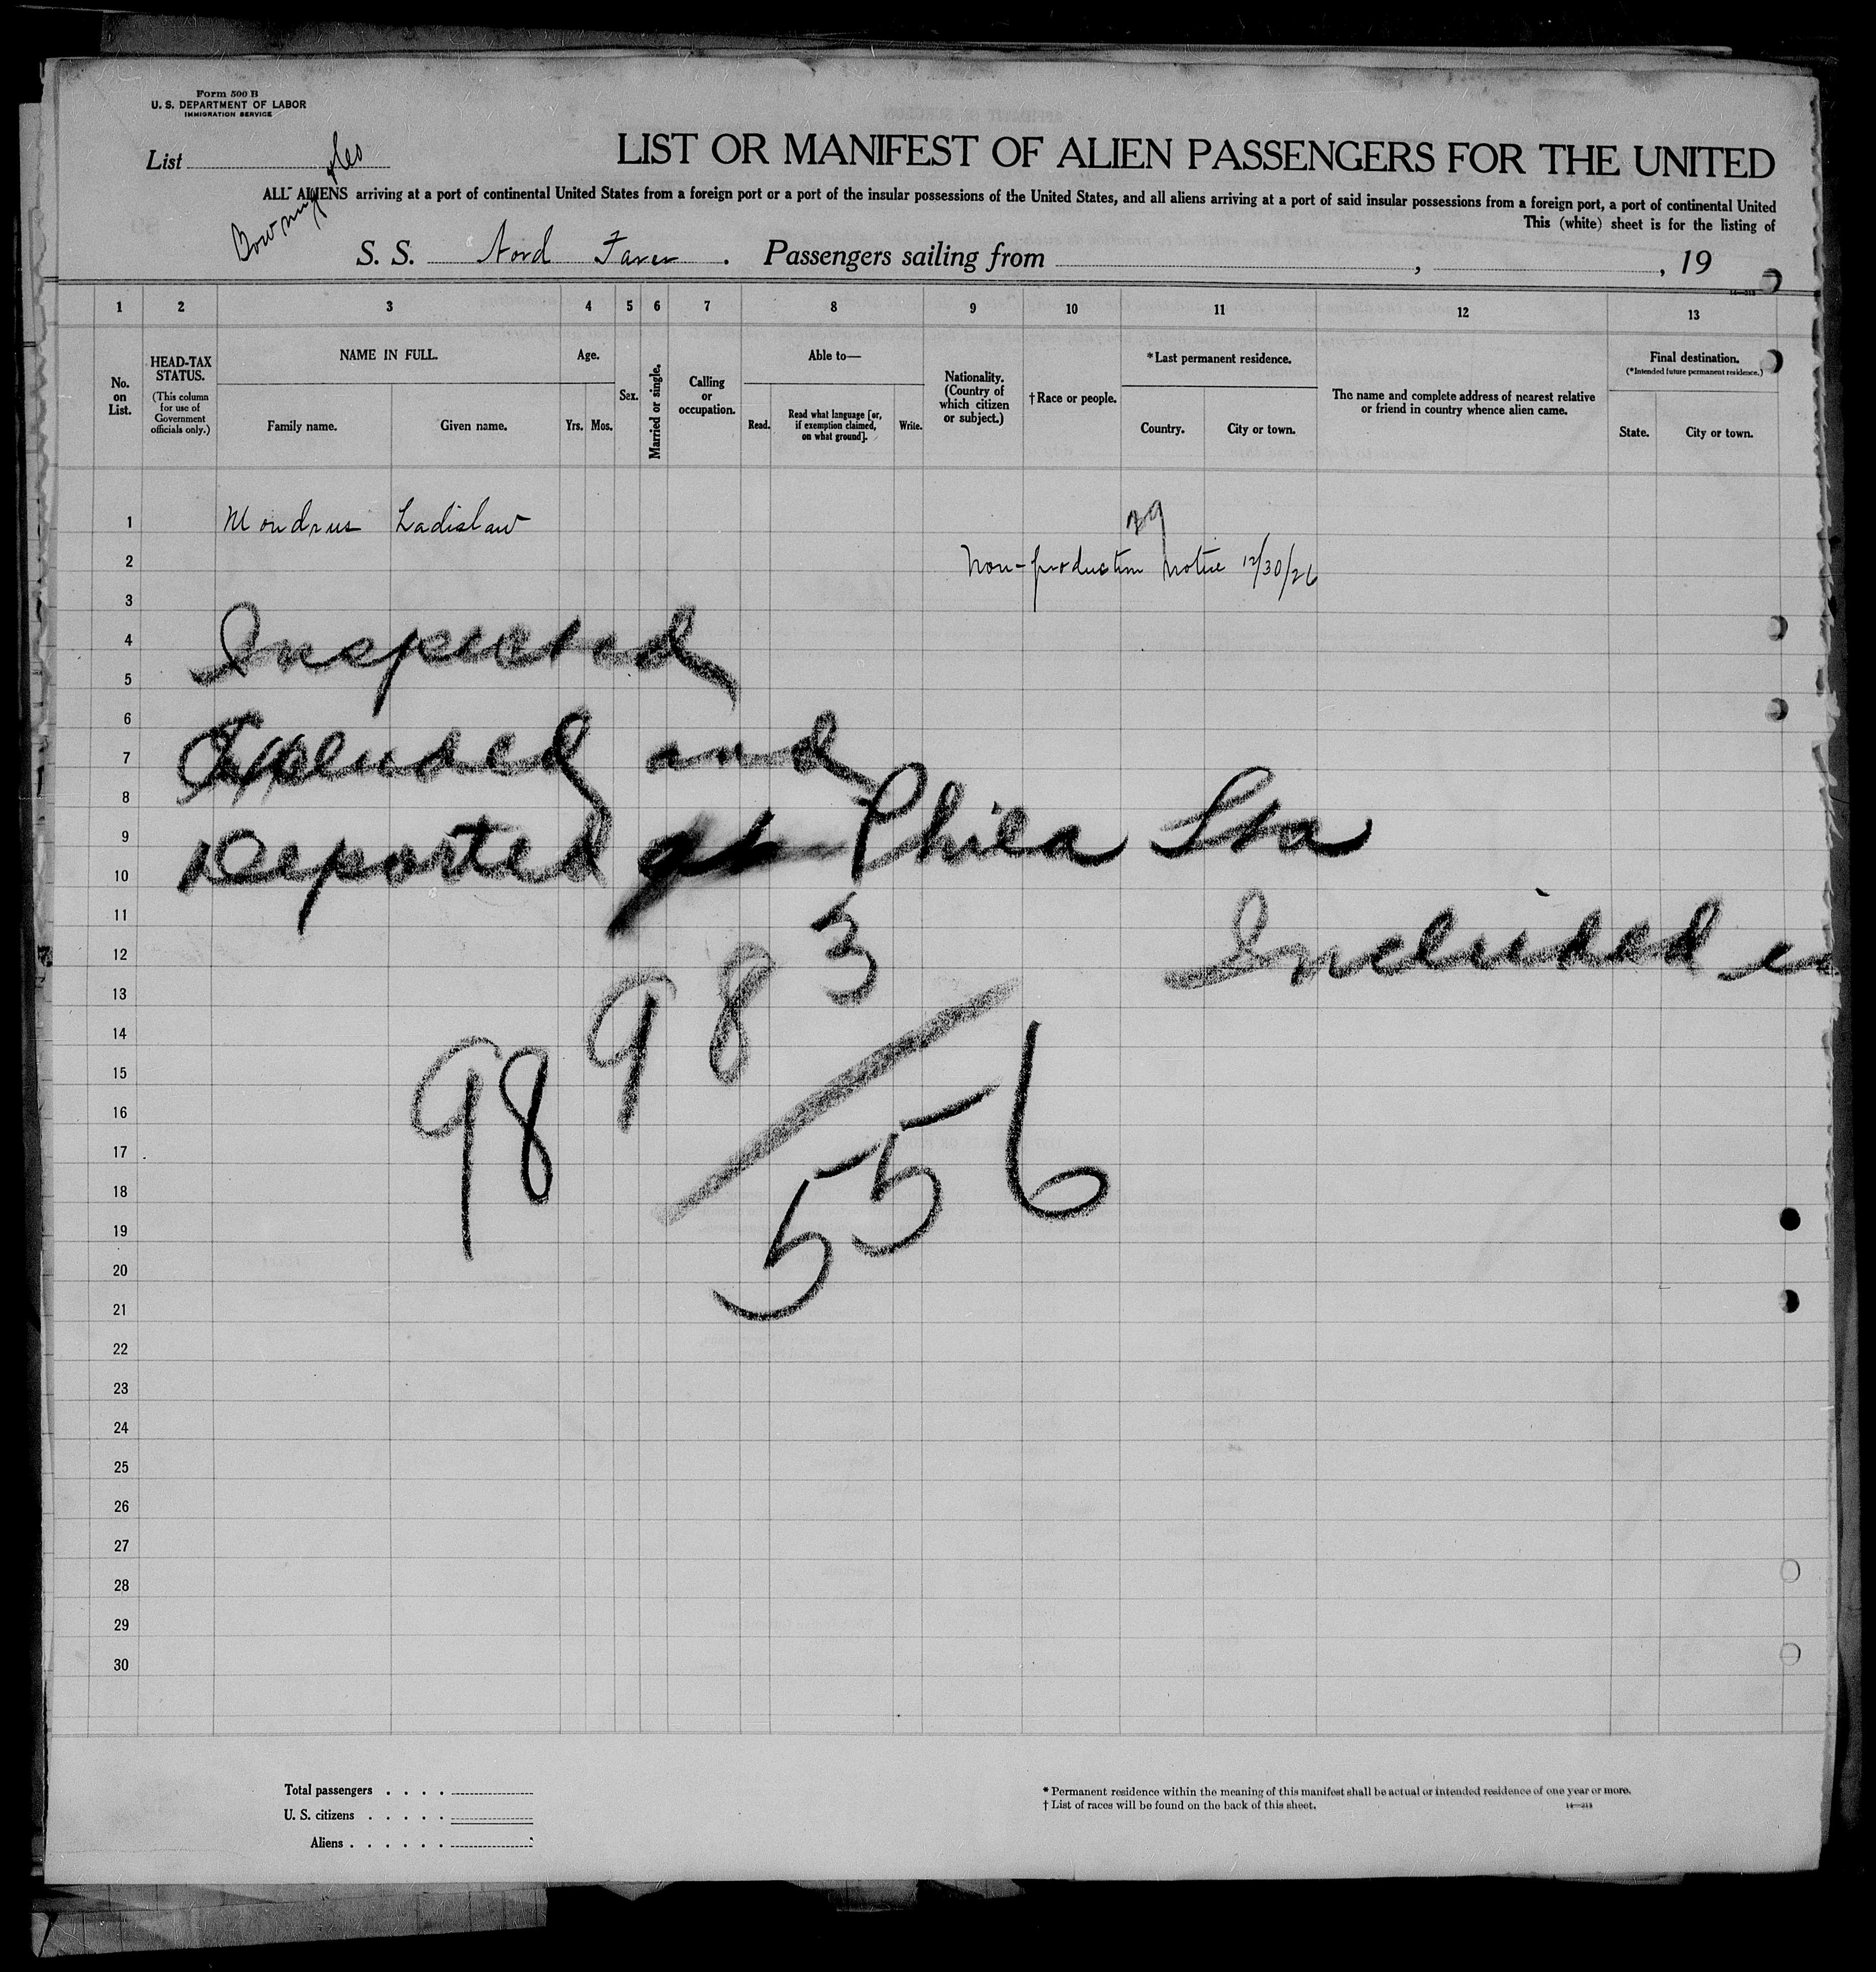 Form 500 B
U. S. DEPARTMENT OF LABOR
IMMIGRATION SERVICE
List
LIST OR MANIFEST OF ALIEN PASSENGERS FOR THE UNITED
ALL ALIENS arriving at a port of continental United States from a foreign port or a port of the insular possessions of the United States, and all aliens arriving at a port of said insular possessions from a foreign port, a port of continental United
This (white) sheet is for the listing of
S. S. Nord Farer. Passengers sailing from , , 19
1 2 3 4 5 6 7 8 9 10 11 12 13
No. on List.
HEAD-TAX STATUS.
(This column for use of Government officials only.)
NAME IN FULL.
Family name. Given name.
Age.
Yrs. Mos.
Sex.
Married or single.
Calling or occupation.
Able to—
Read. Read what language [or, if exemption claimed, on what ground]. Write.
Nationality. (Country of which citizen or subject.)
†Race or people.
*Last permanent residence.
Country. City or town.
The name and complete address of nearest relative or friend in country whence alien came.
Final destination.
(*Intended future permanent residence.)
State. City or town.
1 Mondrus Ladislaw
39
2 Non-production notice 12/30/26
3
4 Inspected
5
6
7 Excluded and
8
9 Deported at Phila Sta
10
11
12 Included
98 3
13
14
98
15
16
556
17
18
19
20
21
22
23
24
25
26
27
28
29
30
Total passengers . . . .
U. S. citizens . . . . .
Aliens . . . . . .
* Permanent residence within the meaning of this manifest shall be actual or intended residence of one year or more.
† List of races will be found on the back of this sheet.
14—213